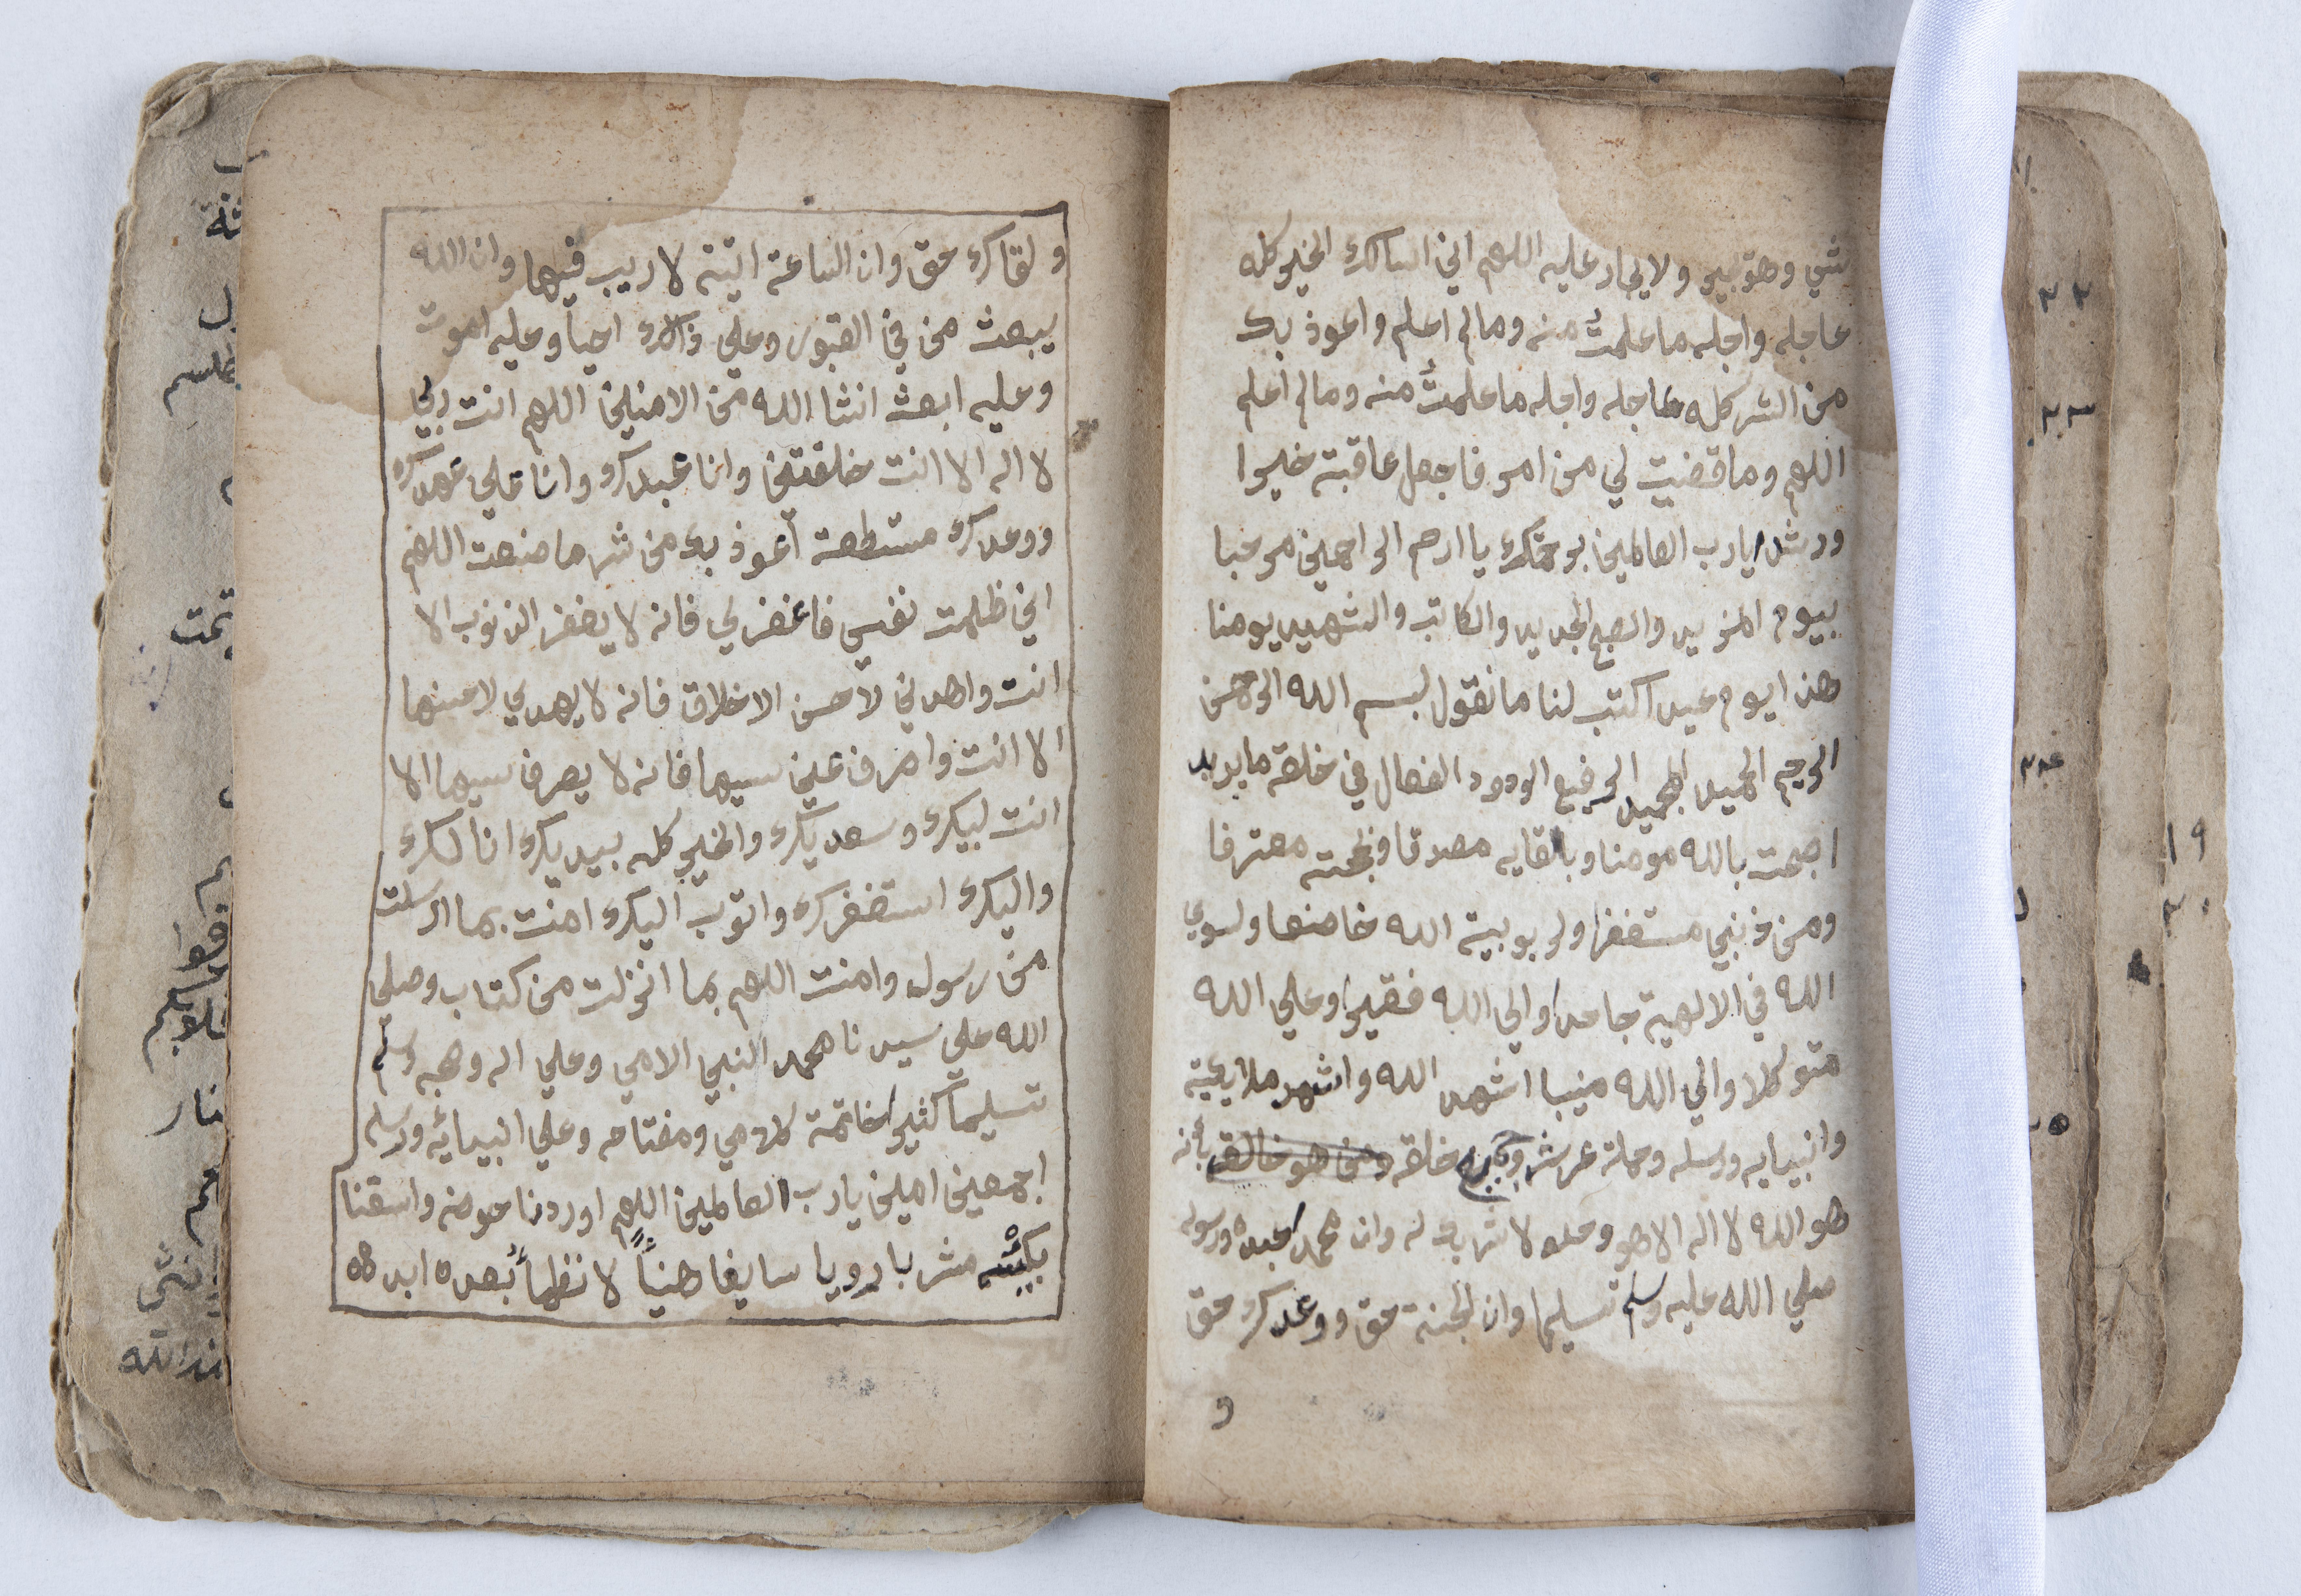 شي وهو يجير ولا يجار عليه اللهم اني اسالك الخير كله
عاجله واجله ما علمتُ منه وما لم اعلم واعوذ بك
من الشر كله عاجله واجله ما علمتُ منه وما لم اعلم
اللهم وما قضيت لي من امر فاجعل عاقبة خيرا
ورشدا يا رب العالمين برحمتك يا ارحم الراحمين مرحبا
بيوم المزيد والصبح الجديد والكاتب والشهيد يومنا
هذا يوم عيد اكتب لنا ما نقول بسم الله الرحمن
الرحيم الحميد المجيد الرفيع الودود الفعال في خلقه ما يريد
اصبحت بالله مومنا وبلقايه مصدقا وبحجته معترفا
ومن ذنبي مستغفرا ولربوبية الله خاضعا ولسوي
الله في الالهية جاحدا والي الله فقيرا وعلي الله
متوكلا والي الله منيبا اشهد الله واشهد ملايكته
وانبيايه ورسله وحملة عرشه وجميع خلقه ومن هو خالقه بأنه
هو الله لا اله الا هو وحده لا شريك له وان محمدا عبده ورسوله
صلي الله عليه وسلم تسليما وان الجنة حق ووعدك حق
و
ولقاك حق وان الساعة اتية لا ريب فيها وان الله
يبعث من في القبور وعلي ذالك احيا وعليه اموت
وعليه ابعث انشا الله من الامنين اللهم انت ربي
لا اله الا انت خلقتني وانا عبدك وانا علي عهدك
ووعدك مستطعة أعوذ بك من شر ما صنعت اللهم
اني ظلمت نفسي فاغفر لي فانه لا يغفر الذنوب الا
انت واهدني لاحسن الاخلاق فانه لا يهدي لاحسنها
الا انت واصرف عني سيها فانه لا يصرف سيها الا
انت لبيك وسعديك والخير كله بيديك انا لك
واليك استغفرك واتوب اليك امنت بما ارسلت
من رسول وامنت اللهم بما انزلت من كتاب وصلي
الله علي سيدنا محمد النبي الامي وعلي اله وصحبه وسلم
تسليما كثيرا خاتمة كلامي ومفتاحه وعلي انبيائه ورسله
اجمعين امين يا رب العالمين اللهم اوردنا حوضه واسقنا
بكئسه مشربا رويا سايغا هنيأً لا نظمأُ بعده ابدا